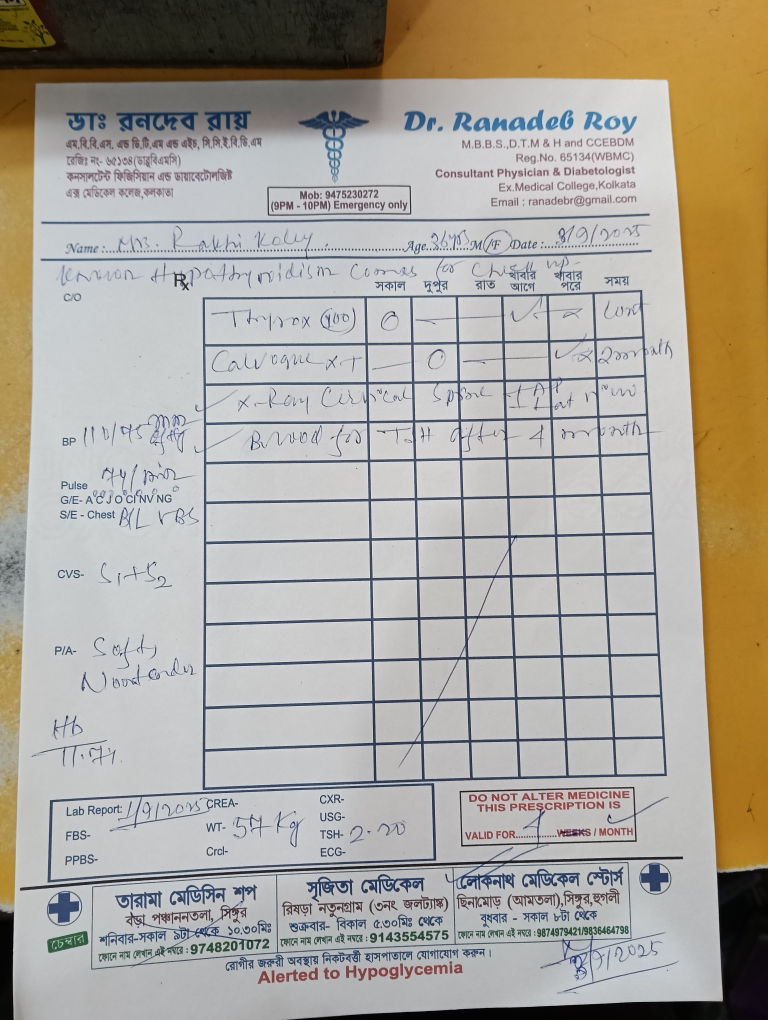 ডাঃ রনদেব রায়
এম.বি.বি.এস, এন্ড ডি.টি.এম এন্ড এইচ, সি.সি.ই.বি.ডি.এম
রেজিঃ নং- ৬৫১৩৪(ডাব্লুবিএমসি)
কনসালটেন্ট ফিজিসিয়ান এন্ড ডায়াবেটোলজিষ্ট
এক্স মেডিকেল কলেজ,কলকাতা
Mob: 9475230272
(9PM - 10PM) Emergency only
Dr. Ranadeb Roy
M.B.B.S.,D.T.M & H and CCEBDM
Reg.No. 65134(WBMC)
Consultant Physician & Diabetologist
Ex.Medical College,Kolkata
Email : ranadebr@gmail.com
Name : Mrs. Rakhi Koley Age 36 yrs M/F Date : 8/9/2025
Known Hypothyroidism comes for check up
C/O Rx সকাল দুপুর রাত খাবার আগে খাবার পরে সময়
Thyrox (100) O — ✓ — x Cont
Calvogue x T — O — ✓ x 2 month
✓ X-Ray Cervical Spine AP Lat view
✓ Blood for TSH after 4 month
BP 110/75
Pulse 74/min
G/E- A C J O CI NV NG
S/E - Chest B/L VBS
CVS- S1+S2
P/A- Soft,
Nontender
Hb
11.7
Lab Report: 1/9/2025 CREA- CXR-
FBS- WT- 57 Kg USG-
TSH- 2.20
PPBS- Crcl- ECG-
DO NOT ALTER MEDICINE
THIS PRESCRIPTION IS
VALID FOR 4 WEEKS / MONTH
চেম্বার
তারামা মেডিসিন শপ
বেড়া পঞ্চাননতলা, সিঙ্গুর
শনিবার-সকাল ৯টা থেকে ১০.৩০মিঃ
ফোনে নাম লেখান এই নম্বরে : 9748201072
সৃজিতা মেডিকেল
রিষড়া নতুনগ্রাম (৩নং জলট্যাঙ্ক)
শুক্রবার- বিকাল ৫.৩০মিঃ থেকে
ফোনে নাম লেখান এই নম্বরে : 9143554575
লোকনাথ মেডিকেল স্টোর্স
ছিনামোড় (আমতলা),সিঙ্গুর,হুগলী
বুধবার - সকাল ৮টা থেকে
ফোনে নাম লেখান এই নম্বরে : 9874979421/9836464798
রোগীর জরুরী অবস্থায় নিকটবর্তী হাসপাতালে যোগাযোগ করুন।
Alerted to Hypoglycemia
8/9/2025